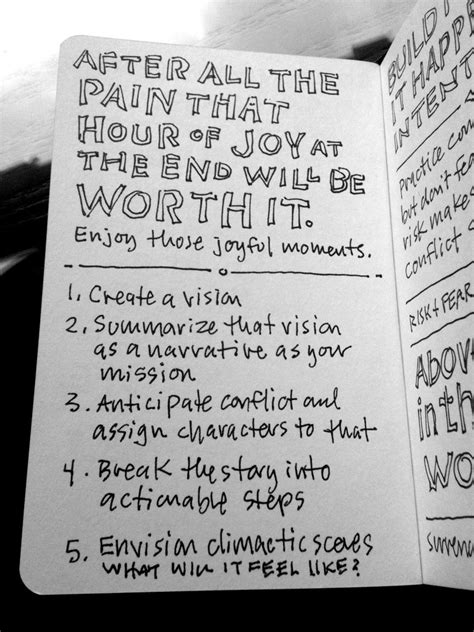 AFTER ALL THE
PAIN THAT
HOUR OF JOY AT
THE END WILL BE
WORTH IT.
Enjoy those joyful moments.
1. Create a vision
2. Summarize that vision
as a narrative as your
mission
3. Anticipate conflict and
assign characters to that
4. Break the story into
actionable steps
5. Envision climactic scenes
WHAT WILL IT FEEL LIKE?
BUILD I
IT HAPPE
INTENT
Practice con
but don't fea
risk make
conflict s
RISK + FEAR
ABOV
in th
WO
surren